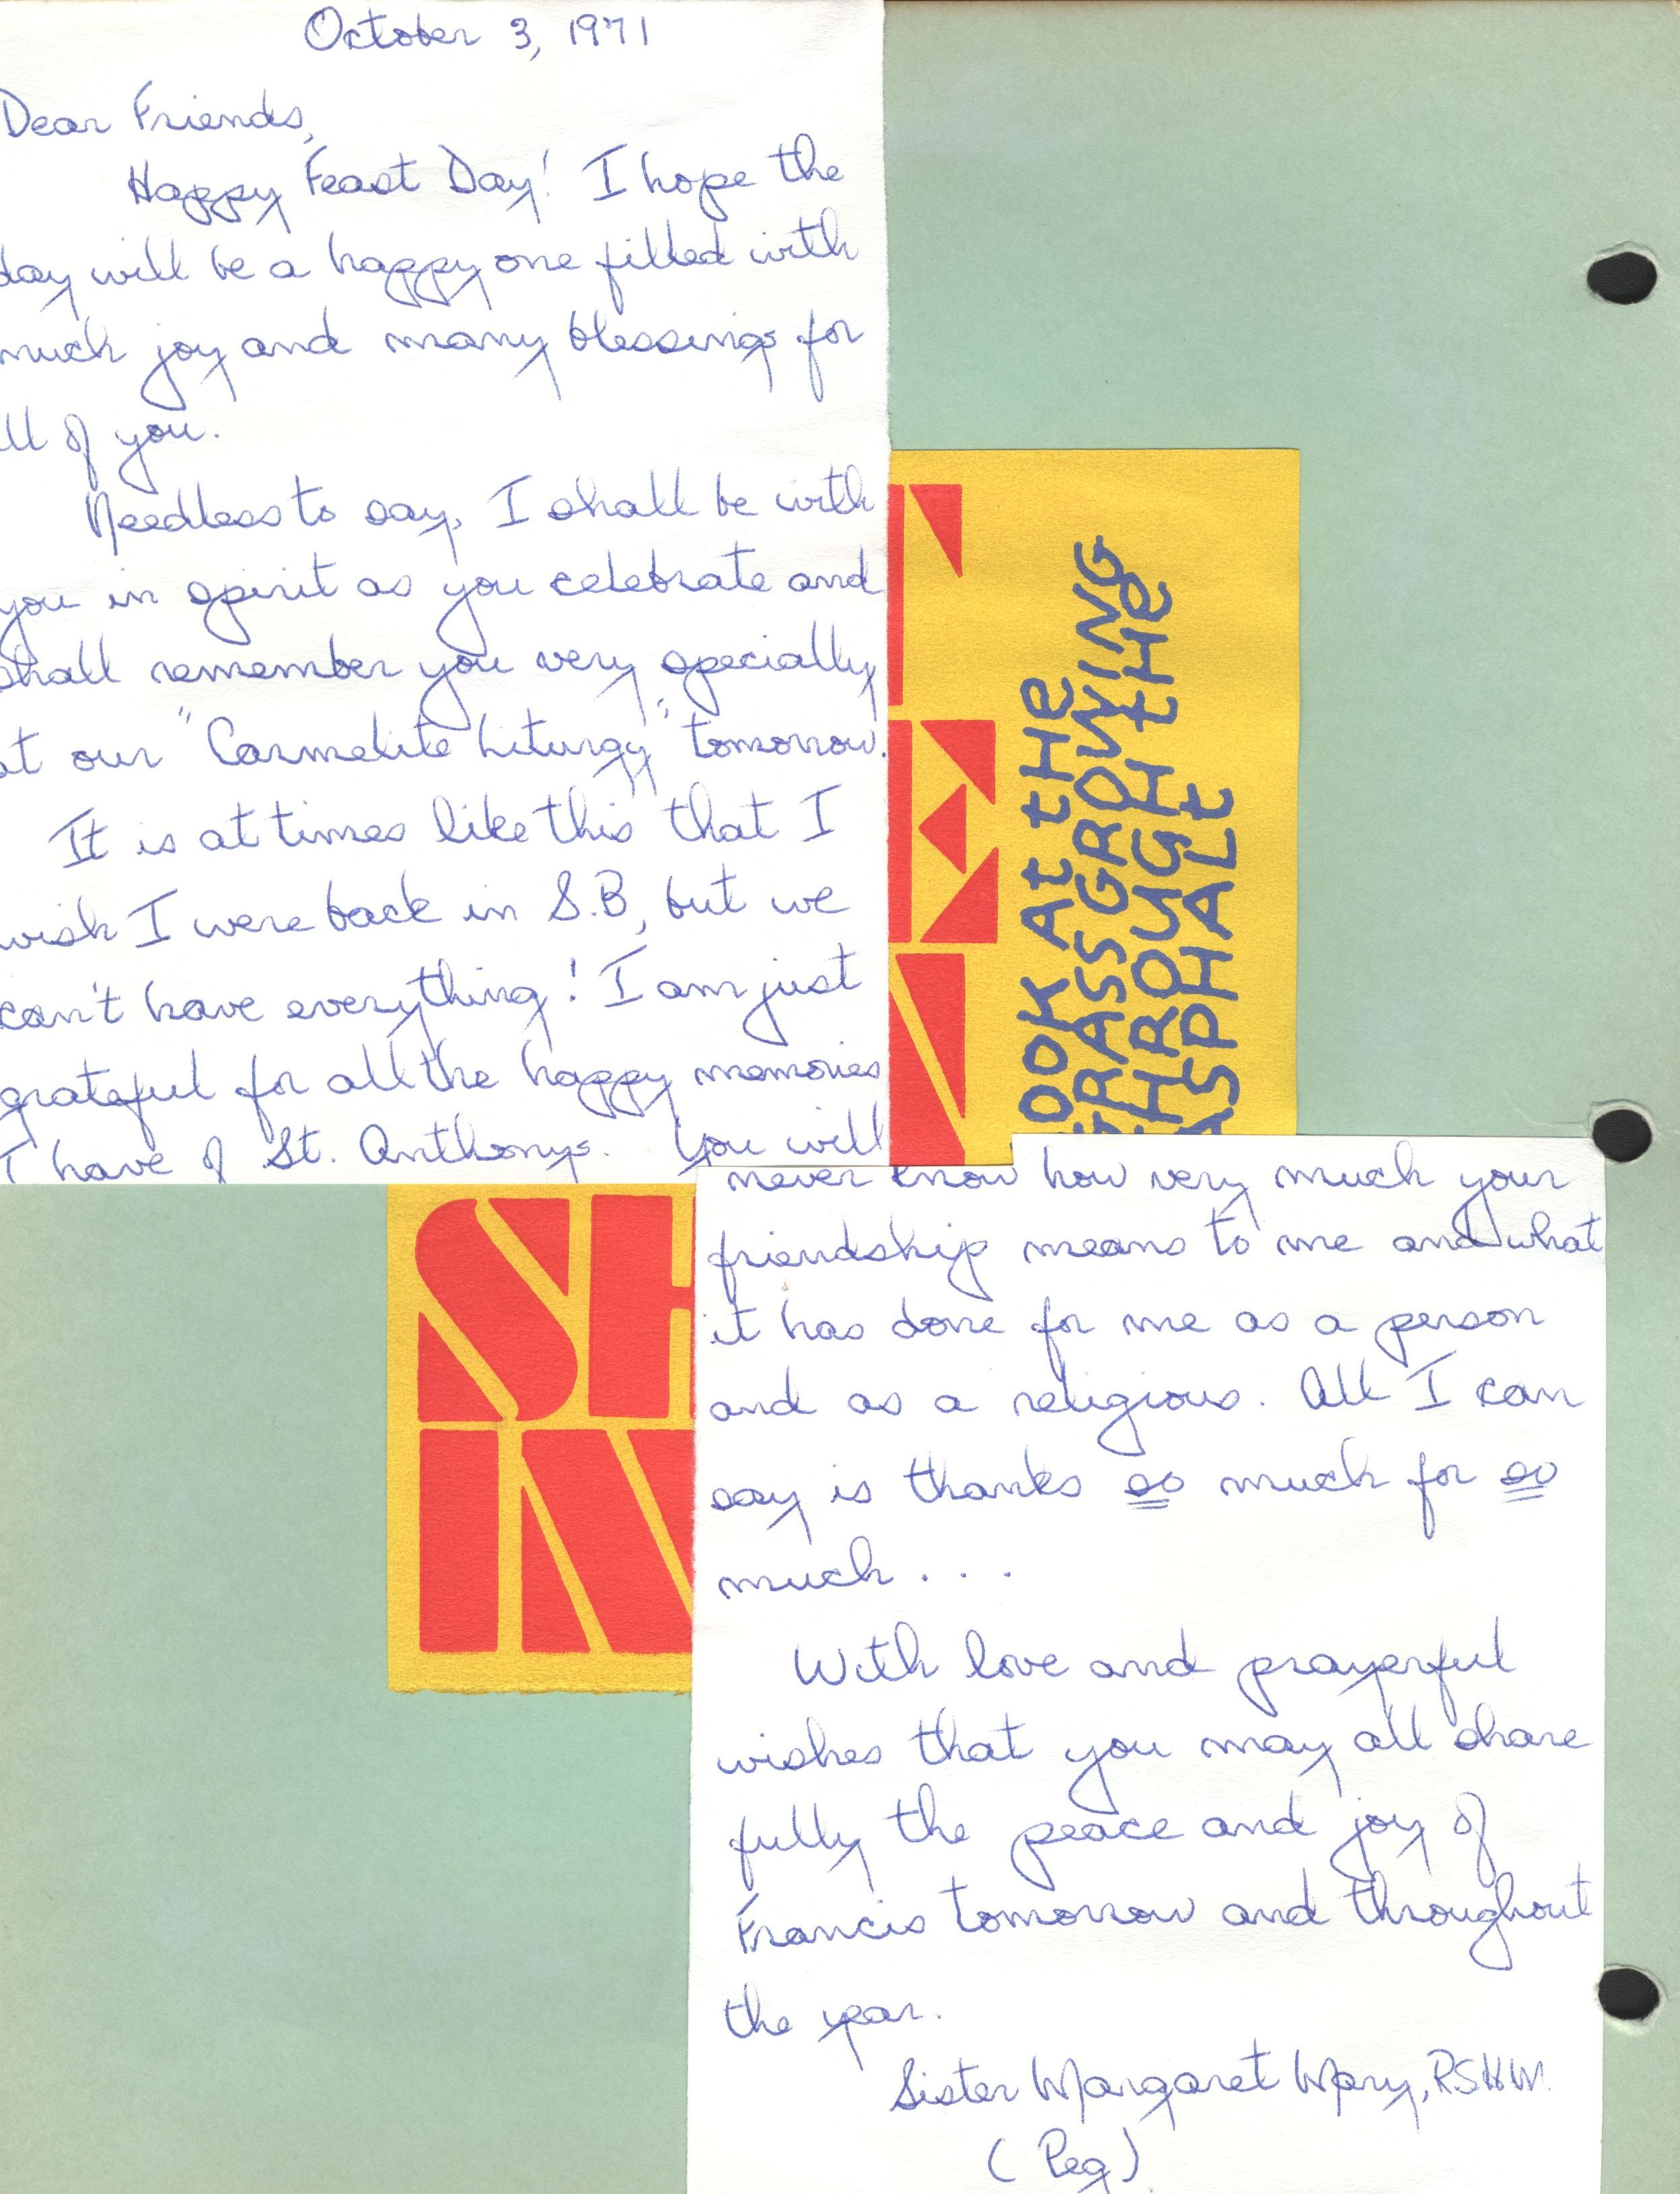 October 3, 1971
Dear Friends,
Happy Feast Day! I hope the
day will be a happy one filled with
much joy and many blessings for
ll of you.
Needless to say, I shall be with
you in spirit as you celebrate and
shall remember you very specially
at our "Carmelite Liturgy" tomorrow.
It is at times like this that I
wish I were back in S.B, but we
can't have everything! I am just
grateful for all the happy memories
I have of St. Anthony's. You will
never know how very much your
friendship means to me and what
it has done for me as a person
and as a religious. All I can
say is thanks so much for so
much...
With love and prayerful
wishes that you may all share
fully the peace and joy of
Francis tomorrow and throughout
the year.
Sister Margaret Mary, R.S.H.M.
(Peg)
OOK At tHe
GRASS GROWING
tHROUGH tHe
ASPHALt
SH
IN
E
N